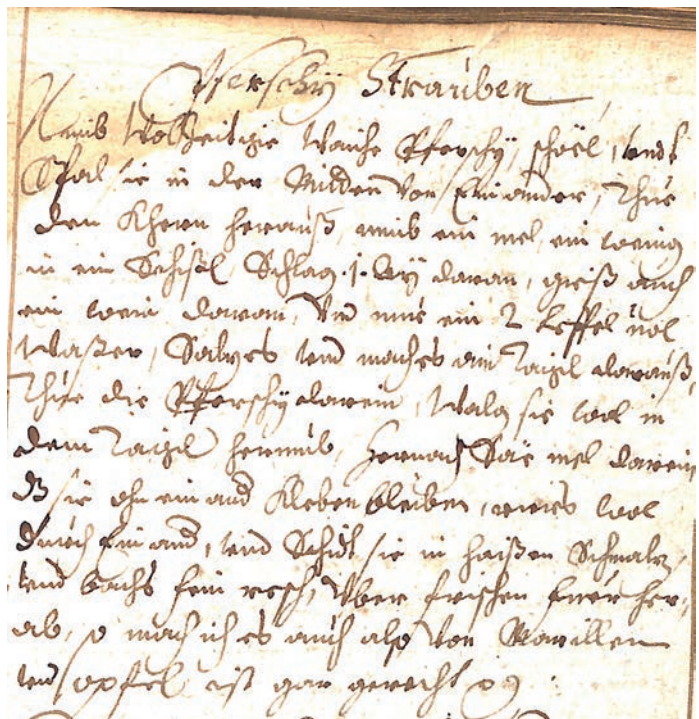 Pferschÿ Strauben
Nimb Wolzeitige Waiche Pferschÿ, schöel, vndt
Spal sie in der Mitten Von Einander, Thue
den Khern herauß, nimb ein mel, ein wenig
in ein Schißl, Schlag .j. Aÿ daran, gieß auch
ein wein daran, Vnd nur ein 2 Leffel uol
Waßer, Salz es vnd mach es ain Taigl darauß
Thue die Pferschÿ darein, Walg sie wol in
dem Taigl herumb, Hernach Säe mel darein
dz sie ohn ein and Kleben bleiben, wol
durch Ein and, vnd Schidt sie in haißen Schmalz,
vnd bachs fein resch, Vber frischen feuer her,
ab, so mach ich es auch also Von Marillen
vnd öpfel ist gar gerecht